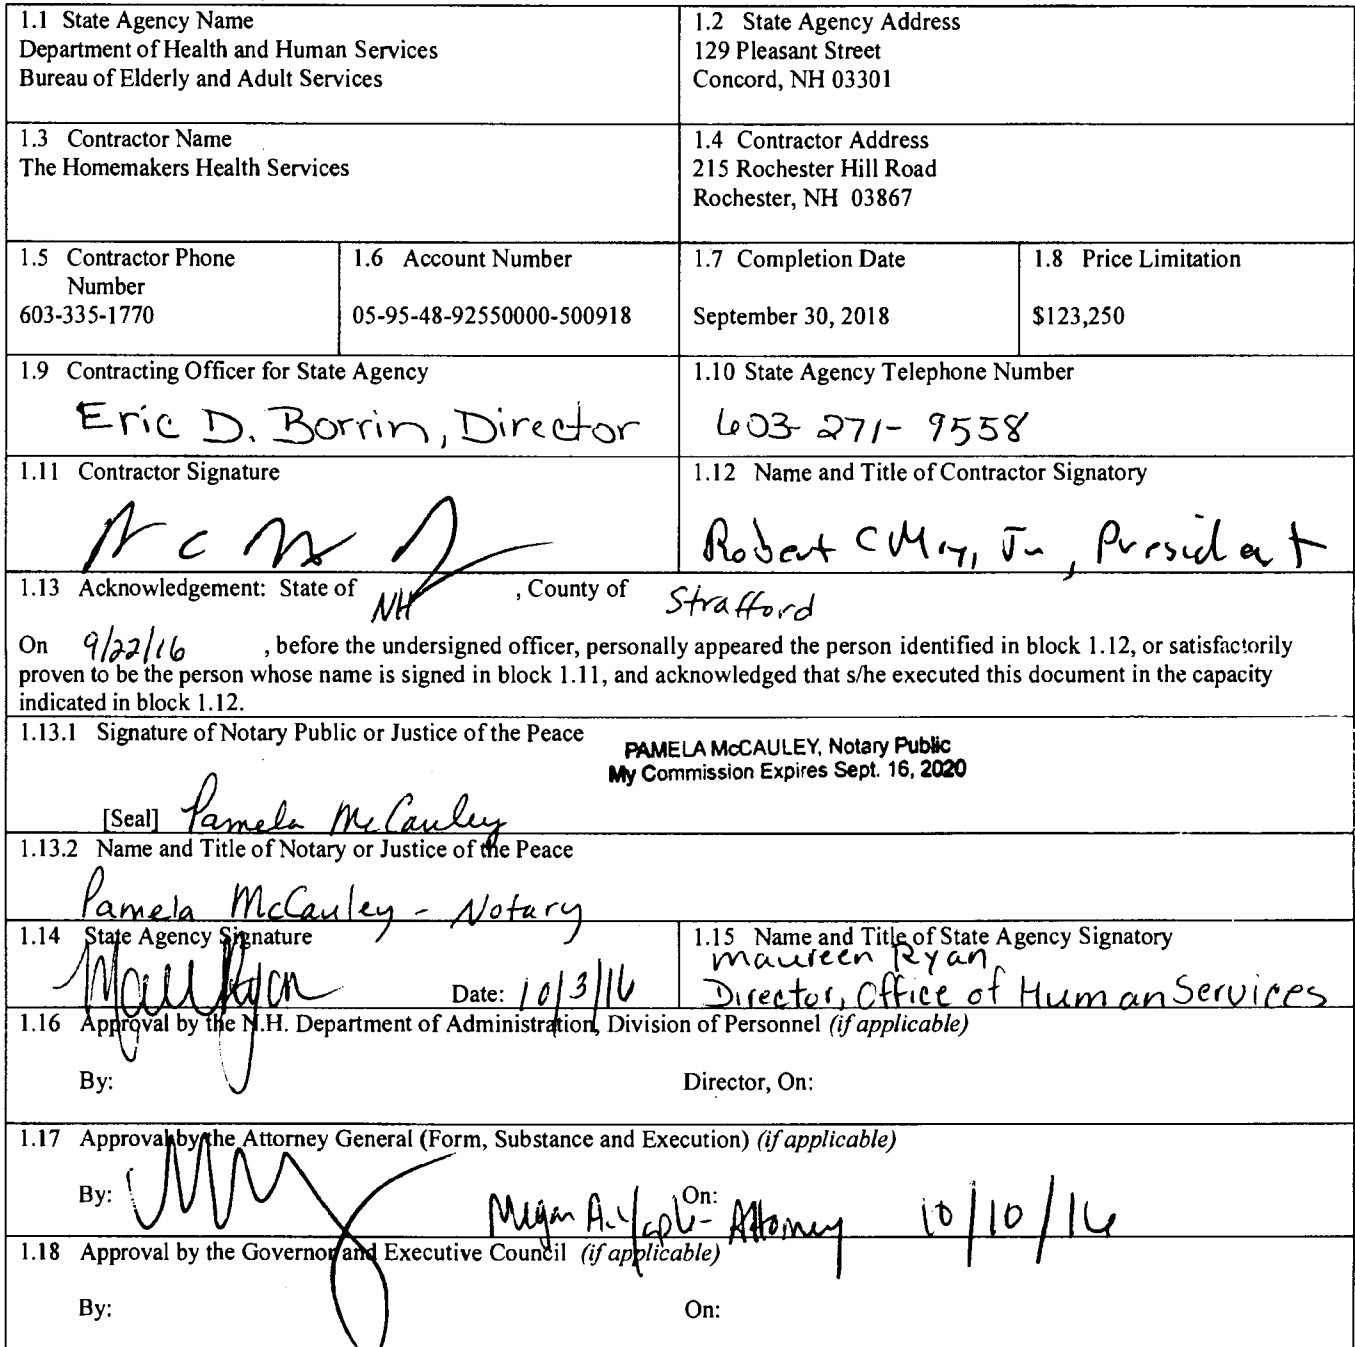 1.1 State Agency Name
Department of Health and Human Services
Bureau of Elderly and Adult Services
1.2 State Agency Address
129 Pleasant Street
Concord, NH 03301
1.3 Contractor Name
The Homemakers Health Services
1.4 Contractor Address
215 Rochester Hill Road
Rochester, NH 03867
1.5 Contractor Phone
Number
603-335-1770
1.6 Account Number
05-95-48-92550000-500918
1.7 Completion Date
September 30, 2018
1.8 Price Limitation
$123,250
1.9 Contracting Officer for State Agency
Eric D. Borrin, Director
1.10 State Agency Telephone Number
603-271-9558
1.11 Contractor Signature
1.12 Name and Title of Contractor Signatory
Robert C Jr, President
1.13 Acknowledgement: State of NH, County of Strafford
On 9/22/16, before the undersigned officer, personally appeared the person identified in block 1.12, or satisfactorily
proven to be the person whose name is signed in block 1.11, and acknowledged that s/he executed this document in the capacity
indicated in block 1.12.
1.13.1 Signature of Notary Public or Justice of the Peace
PAMELA McCAULEY, Notary Public
My Commission Expires Sept. 16, 2020
[Seal] Pamela McCauley
1.13.2 Name and Title of Notary or Justice of the Peace
Pamela McCauley - Notary
1.14 State Agency Signature
Date: 10/3/16
1.15 Name and Title of State Agency Signatory
Maureen Ryan
Director, Office of Human Services
1.16 Approval by the N.H. Department of Administration, Division of Personnel (if applicable)
By:
Director, On:
1.17 Approval by the Attorney General (Form, Substance and Execution) (if applicable)
By:
On:
Megan A. Yaple - Attorney 10/10/16
1.18 Approval by the Governor and Executive Council (if applicable)
By:
On: